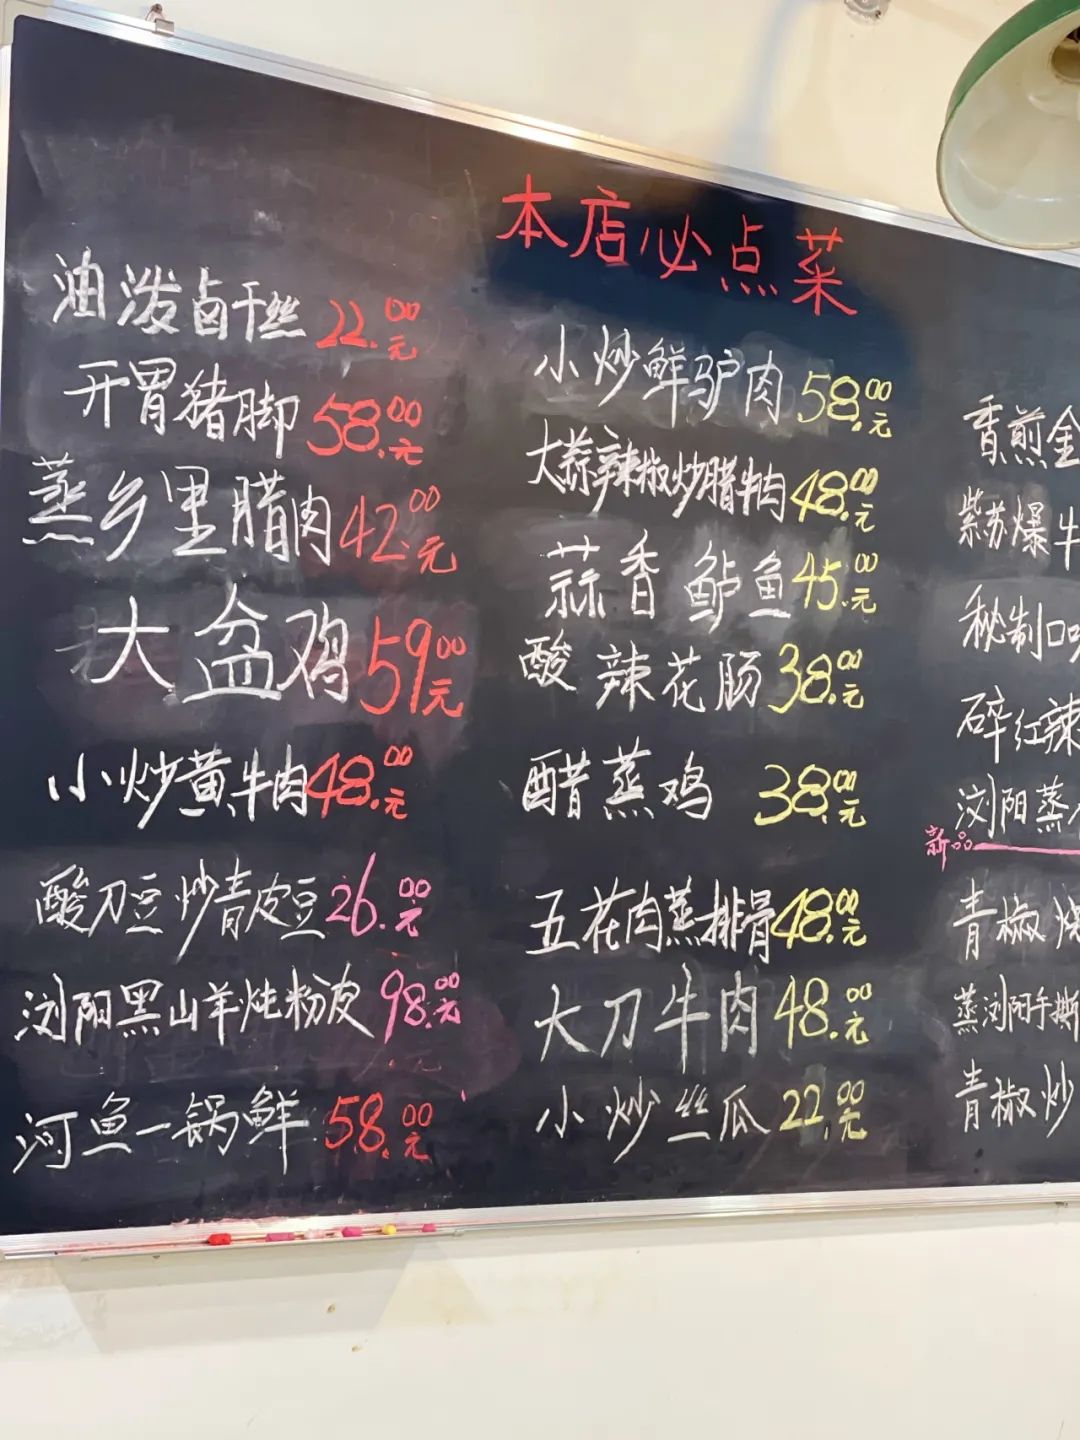 本店必点菜
油泼卤干丝 22.00元
开胃猪脚 58.00元
蒸乡里腊肉 42.00元
大盆鸡 59.00元
小炒黄牛肉 48.00元
酸刀豆炒青皮豆 26.00元
浏阳黑山羊炖粉皮 98.00元
河鱼一锅鲜 58.00元
小炒鲜驴肉 58.00元
大蒜辣椒炒腊牛肉 48.00元
蒜香鲈鱼 45.00元
酸辣花肠 38.00元
醋蒸鸡 38.00元
五花肉蒸排骨 48.00元
大刀牛肉 48.00元
小炒丝瓜 22.00元
香煎金
紫苏爆牛
秘制口
碎红辣
浏阳蒸
新品
青椒烧
蒸浏阳手撕
青椒炒